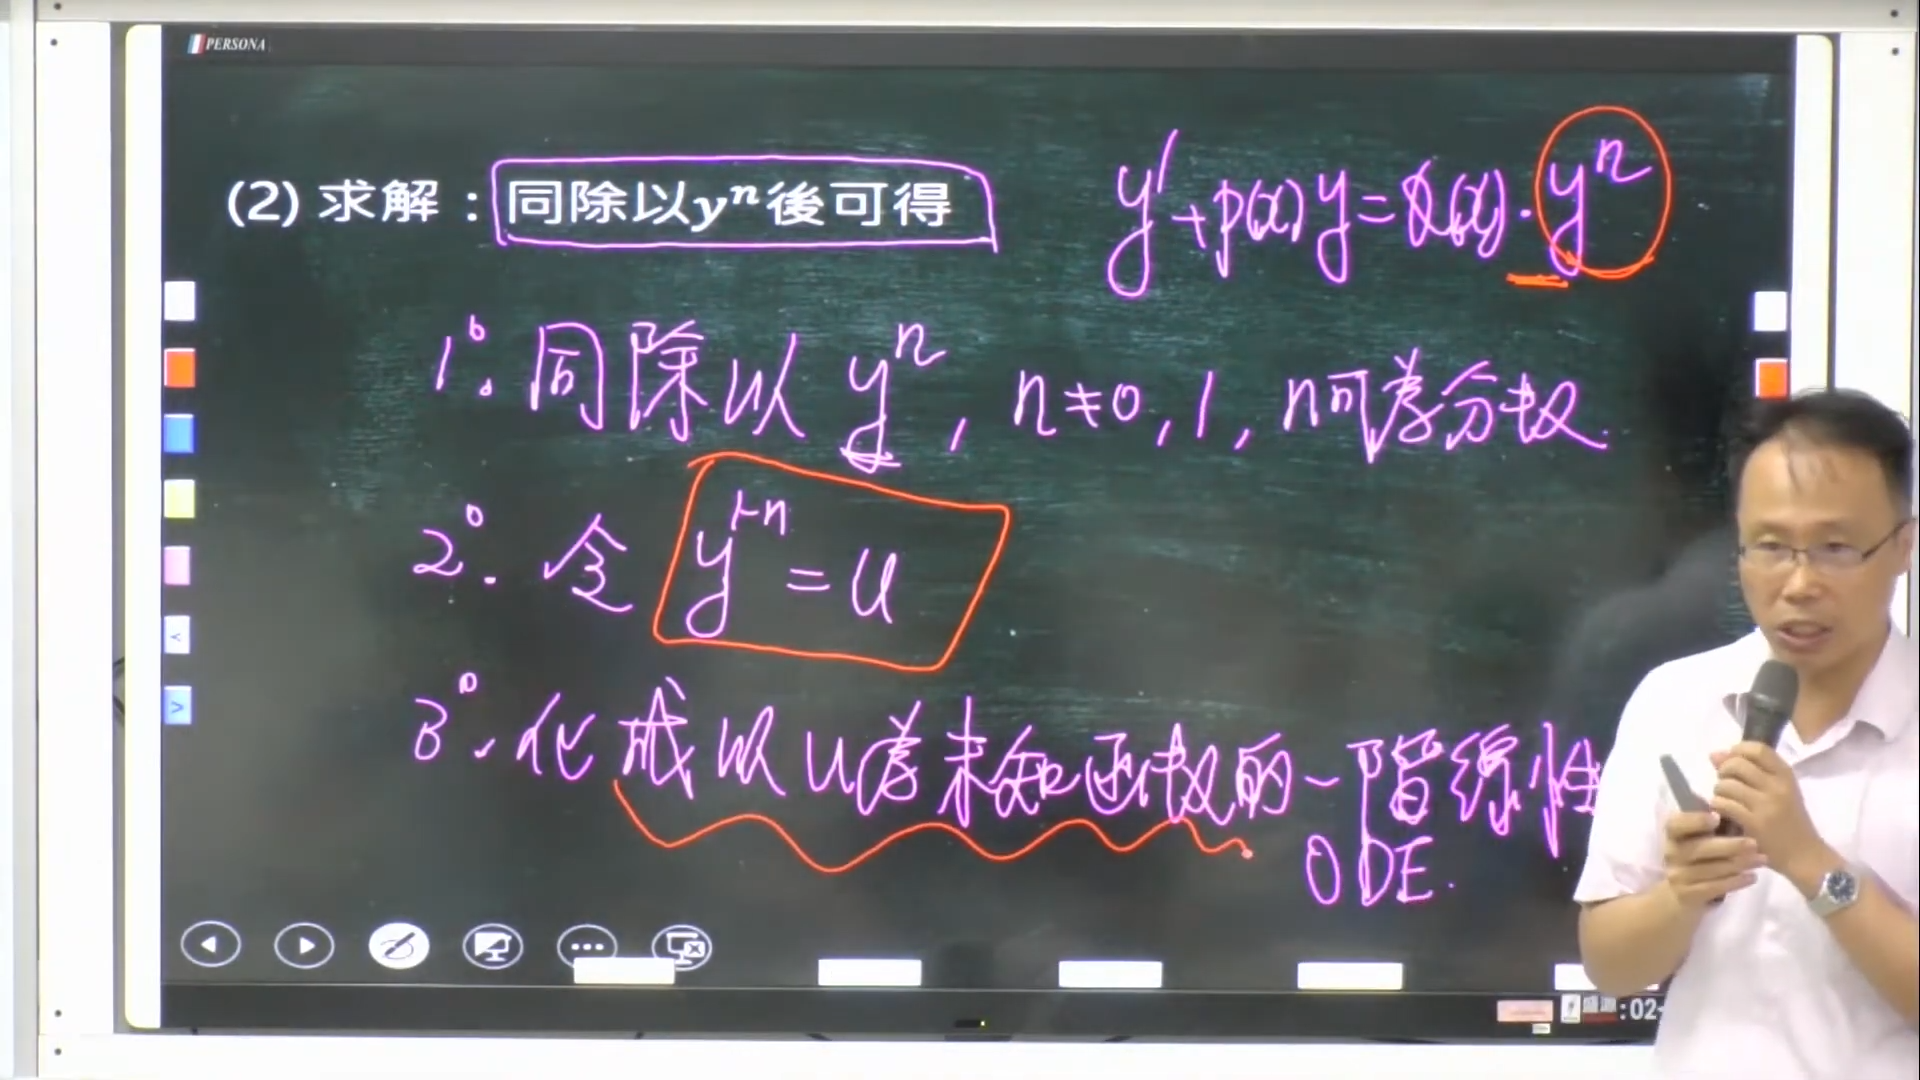 PERSONA
(2) 求解：同除以yⁿ後可得
y' + p(x) y = Q(x) · yⁿ
1°. 同除以 yⁿ, n≠0, 1, n可為分数
2°. 令 y¹⁻ⁿ = u
3°. 化成以u為未知函数的一階線性
ODE.
:02